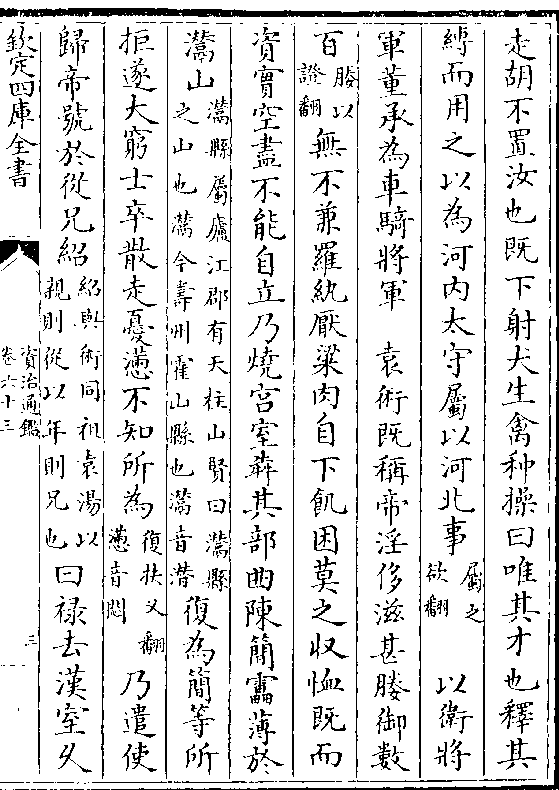 走胡不置汝也既下射犬生禽种操曰唯其才也釋其
縛而用之以為河内太守屬以河北事屬之欲翻以衛將
軍董承為車騎將軍　袁術既稱帝淫侈滋甚媵御數
百媵以證翻無不兼羅紈厭粱肉自下飢困莫之収恤既而
資實空盡不能自立乃燒宫室犇其部曲陳簡雷薄於
灊山灊縣屬廬江郡有天柱山賢曰灊縣之山也灊今壽州霍山縣也灊音潛復為簡等所
拒遂大窮士卒散走憂懣不知所為復扶又翻懣音悶乃遣使
歸帝號於從兄紹紹與術同祖袁湯以親則從以年則兄也曰禄去漢室久
欽定四庫全書
資治通鑑
卷六十三
三